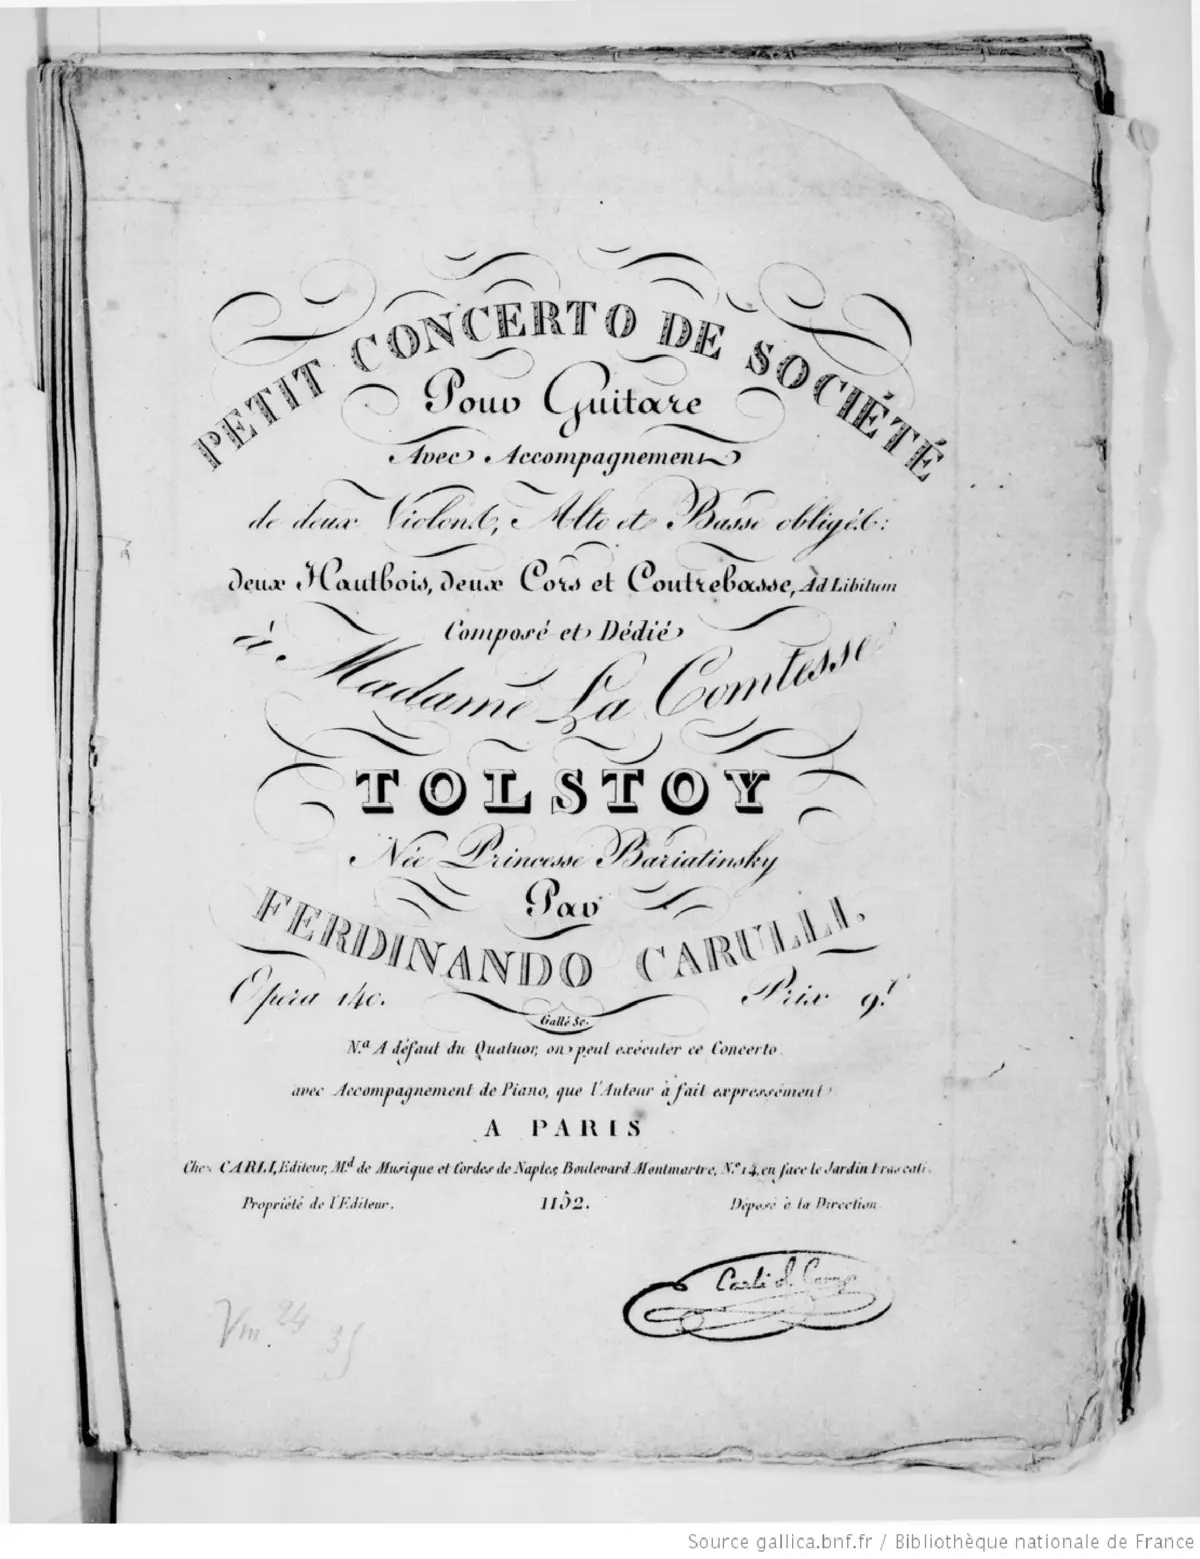 PETIT CONCERTO DE SOCIÉTÉ
Pour Guitare
Avec Accompagnement
de deux Violons, Alto et Basse obligés:
deux Hautbois, deux Cors et Contrebasse, Ad Libitum
Composé et Dédié
à Madame La Comtesse
TOLSTOY
Née Princesse Bariatinsky
Par
FERDINANDO CARULLI.
Opera 140. Prix 9.f
Gallé Sc.
N.a A défaut du Quatuor, on peut exécuter ce Concerto
avec Accompagnement de Piano, que l'Auteur à fait expressément
A PARIS
Chez CARLI, Editeur, M.d de Musique et Cordes de Naples, Boulevard Montmartre, N.o 14, en face le Jardin Frascati.
Propriété de l'Editeur. 1152. Déposé à la Direction.
Carli
Vm. 24
35
Source gallica.bnf.fr / Bibliothèque nationale de France